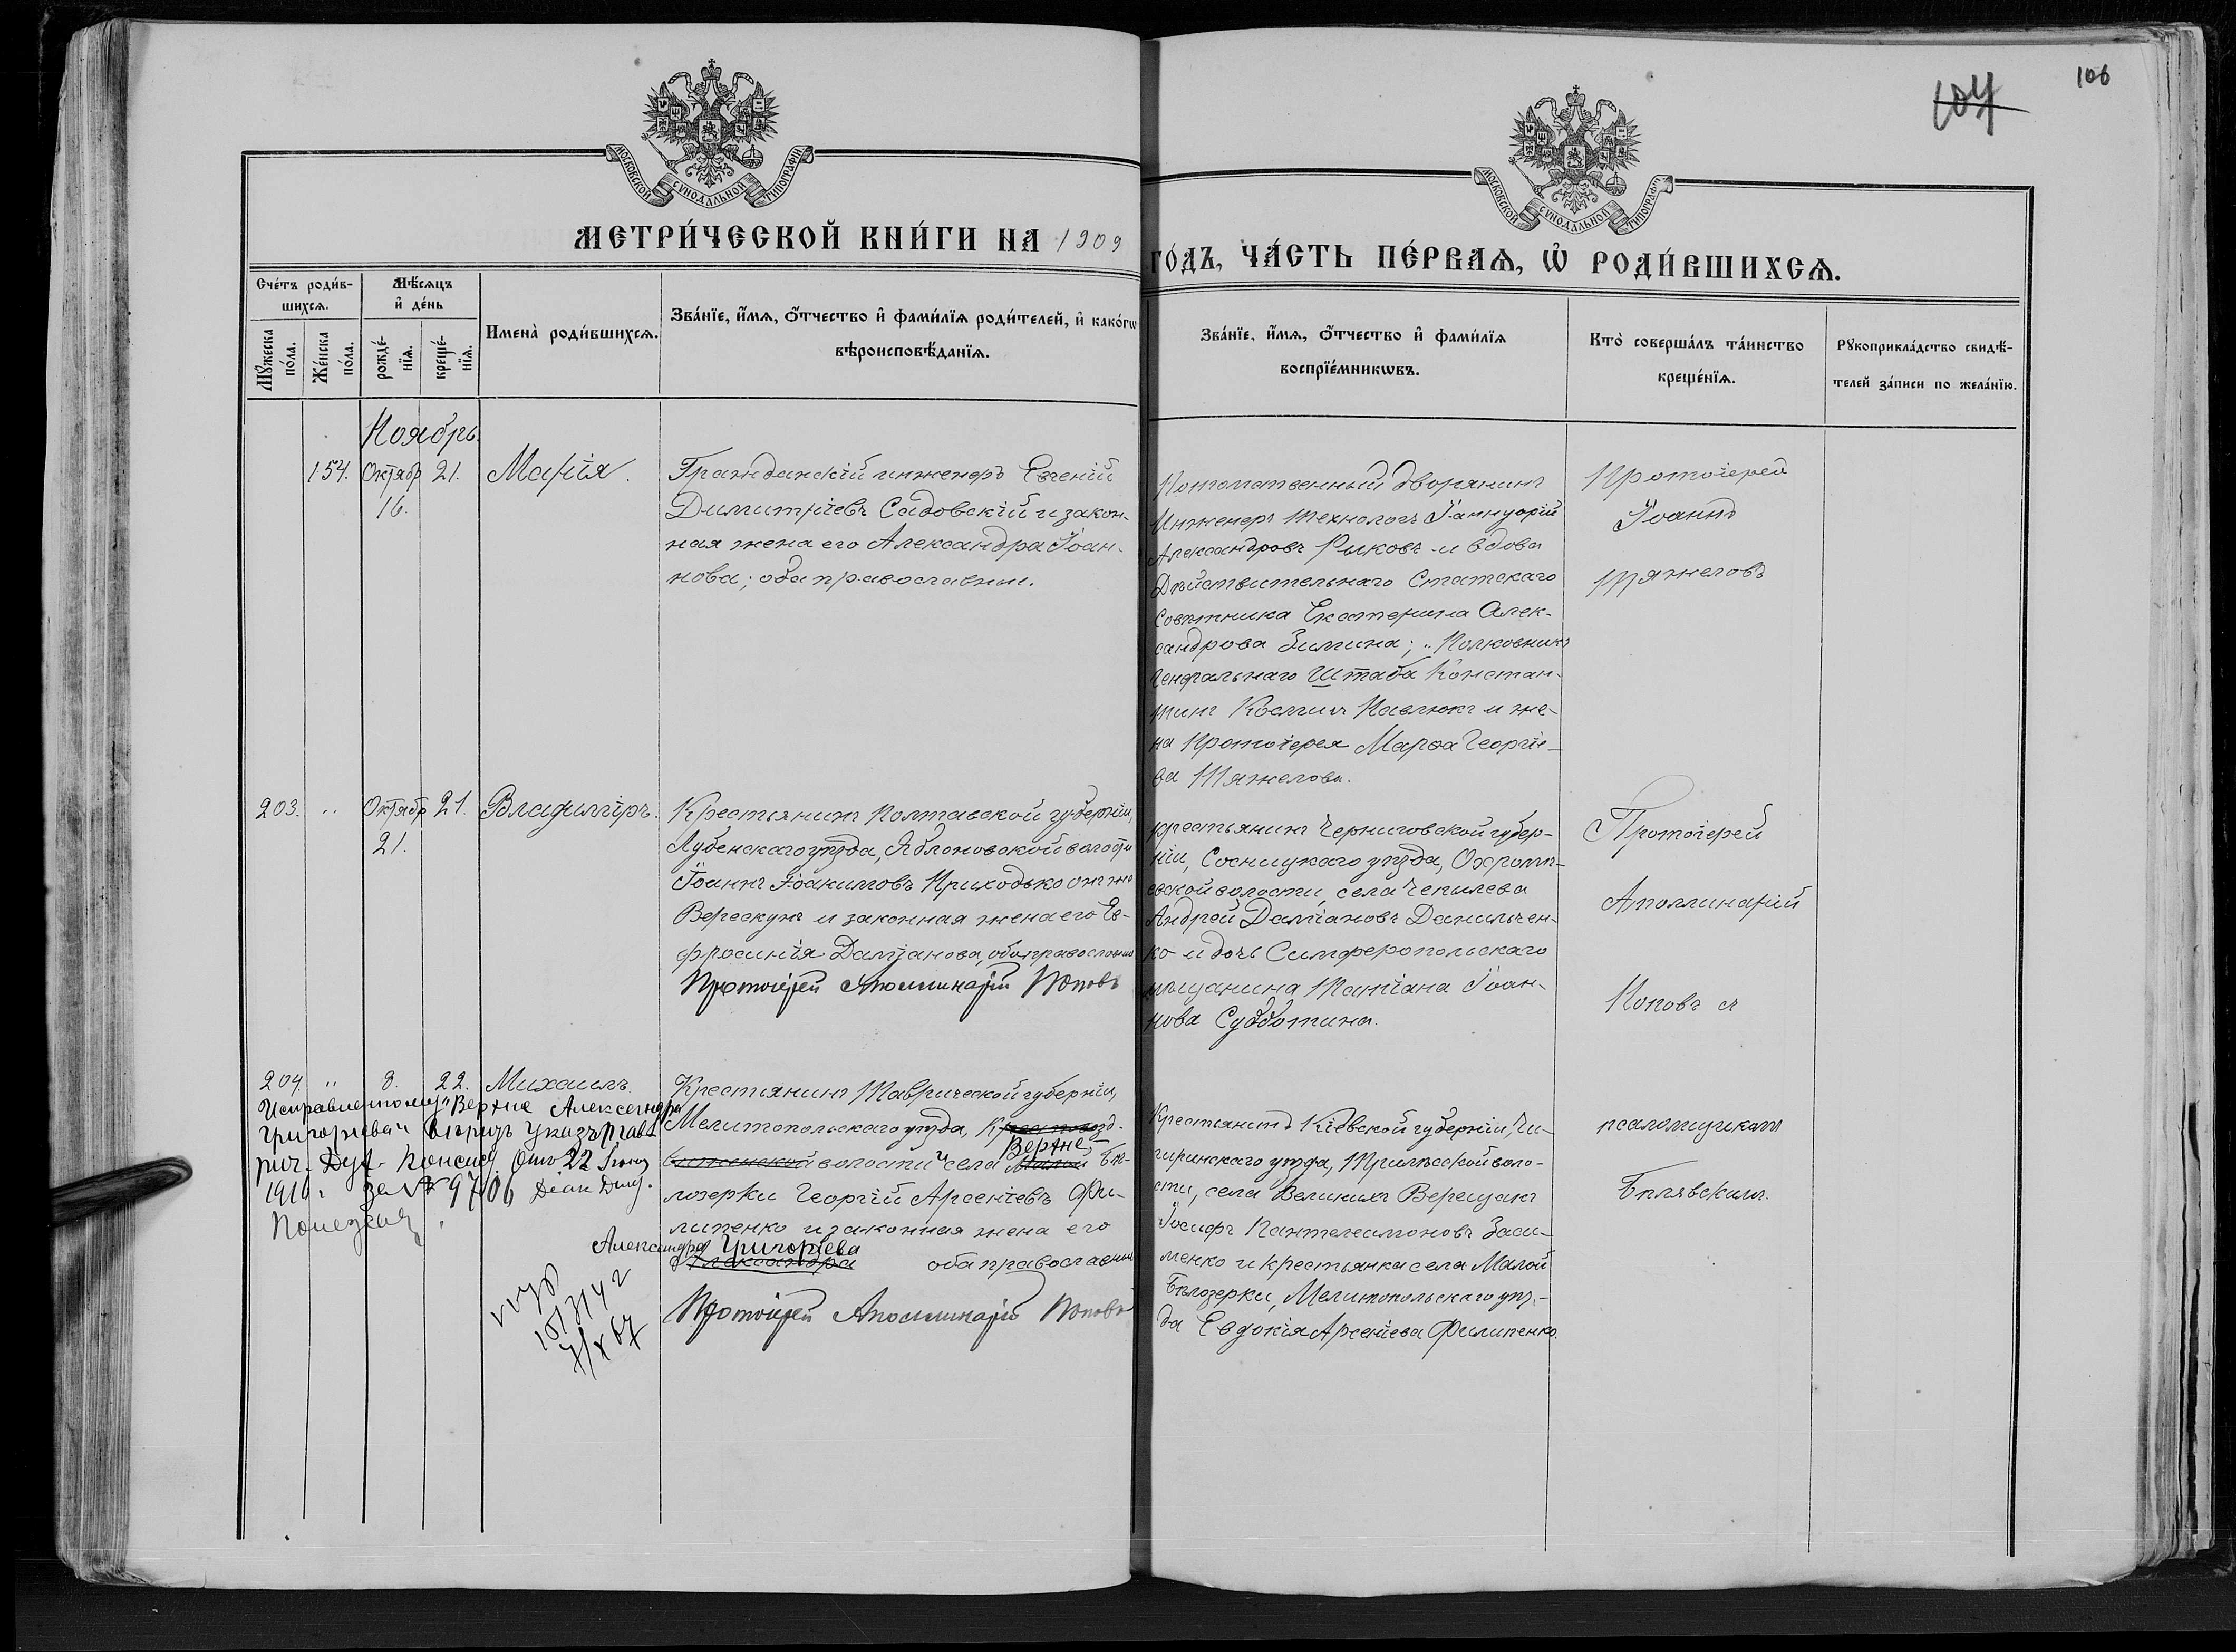 106
104
МОСКОВСКОЙ СѴНОДАЛЬНОЙ ТИПОГРАФІИ
МОСКОВСКОЙ СѴНОДАЛЬНОЙ ТИПОГРАФІИ
МЕТРИ́ЧЕСКОЙ КНИ́ГИ НА 1909
ГО́ДЪ, ЧА́СТЬ ПЕ́РВАѦ, Ѡ҆ РОДИ́ВШИХСѦ.
Сче́тъ роди́в-
шихсѧ.
Мꙋ́жеска
по́ла.
Же́нска
по́ла.
Мѣ́сяцъ
и҆ де́нь
рожде́-
нїѧ.
креще́-
нїѧ.
Имена̀ роди́вшихсѧ.
Зва́нїе, и҆́мѧ, ѻ҆́тчество и҆ фами́лїѧ роди́телей, и҆ како́гѡ
вѣроисповѣ́данїѧ.
Зва́нїе, и҆́мѧ, ѻ҆́тчество и҆ фами́лїѧ
воспрїе́мникѡвъ.
Кто̀ соверша́лъ та́инство
креще́нїѧ.
Рꙋкоприкла́дство свидѣ́-
телей за́писи по жела́нїю.
Ноябрь.
154. Октябр 21. Марія.
16.
Гражданскій инженеръ Евгеній
Димитріевъ Садовскій и закон-
ная жена его Александра Іоан-
нова; оба православные.
Потомственный дворянинъ
Инженеръ технологъ Іаннуарій
Александровъ Рыковъ и вдова
Дѣйствительнаго Статскаго
Совѣтника Екатерина Алек-
сандрова Зимина; Полковникъ
Генеральнаго Штаба Констан-
тинъ Косминъ Павлюкъ и же-
на Протоіерея Марѳа Георгіе-
ва Тяжелова.
Протоіерей
Іоаннъ
Тяжеловъ
203. " Октябр 21. Владиміръ.
21.
Крестьянинъ Полтавской губерніи,
Лубенскаго уѣзда, Яблоновской волости
Іоаннъ Іоакимовъ Приходько онъ же
Верескунъ и законная жена его Ев-
фросинія Даміанова, оба православные
Протоіерей Аполлинарій Поповъ
крестьянинъ Черниговской губер-
ніи, Сосницкаго уѣзда, Охромѣ-
евской волости, села Чепилева
Андрей Даміановъ Данильчен-
ко и дочь Симферопольскаго
мѣщанина Татіана Іоан-
нова Субботина.
Протоіерей
Аполлинарій
Поповъ съ
204. " 8. 22. Михаилъ.
Исправленному "Верхне Александра
Григорьева" вѣрить Указъ Тав-
рич. Дух. Консис. Отъ 22
1916 г. за № 9706
Крестьянинъ Таврической губерніи,
Мелитопольскаго уѣзда,
волости села Верхне- Бѣ-
лозерки Георгій Арсеніевъ Фи-
липенко и законная жена его
Александра Григорьева
Александра оба православные
Протоіерей Аполлинарій Поповъ
Крестьянинъ Кіевской губерніи, Чи-
гиринскаго уѣзда, Трилѣсской воло-
сти, села Великихъ Верещакъ
Іосифъ Пантелеимоновъ Заси-
менко и крестьянка села Малой
Бѣлозерки, Мелитопольскаго уѣз-
да Евдокія Арсеніева Филипенко.
псаломщикомъ
Бѣлявскимъ.